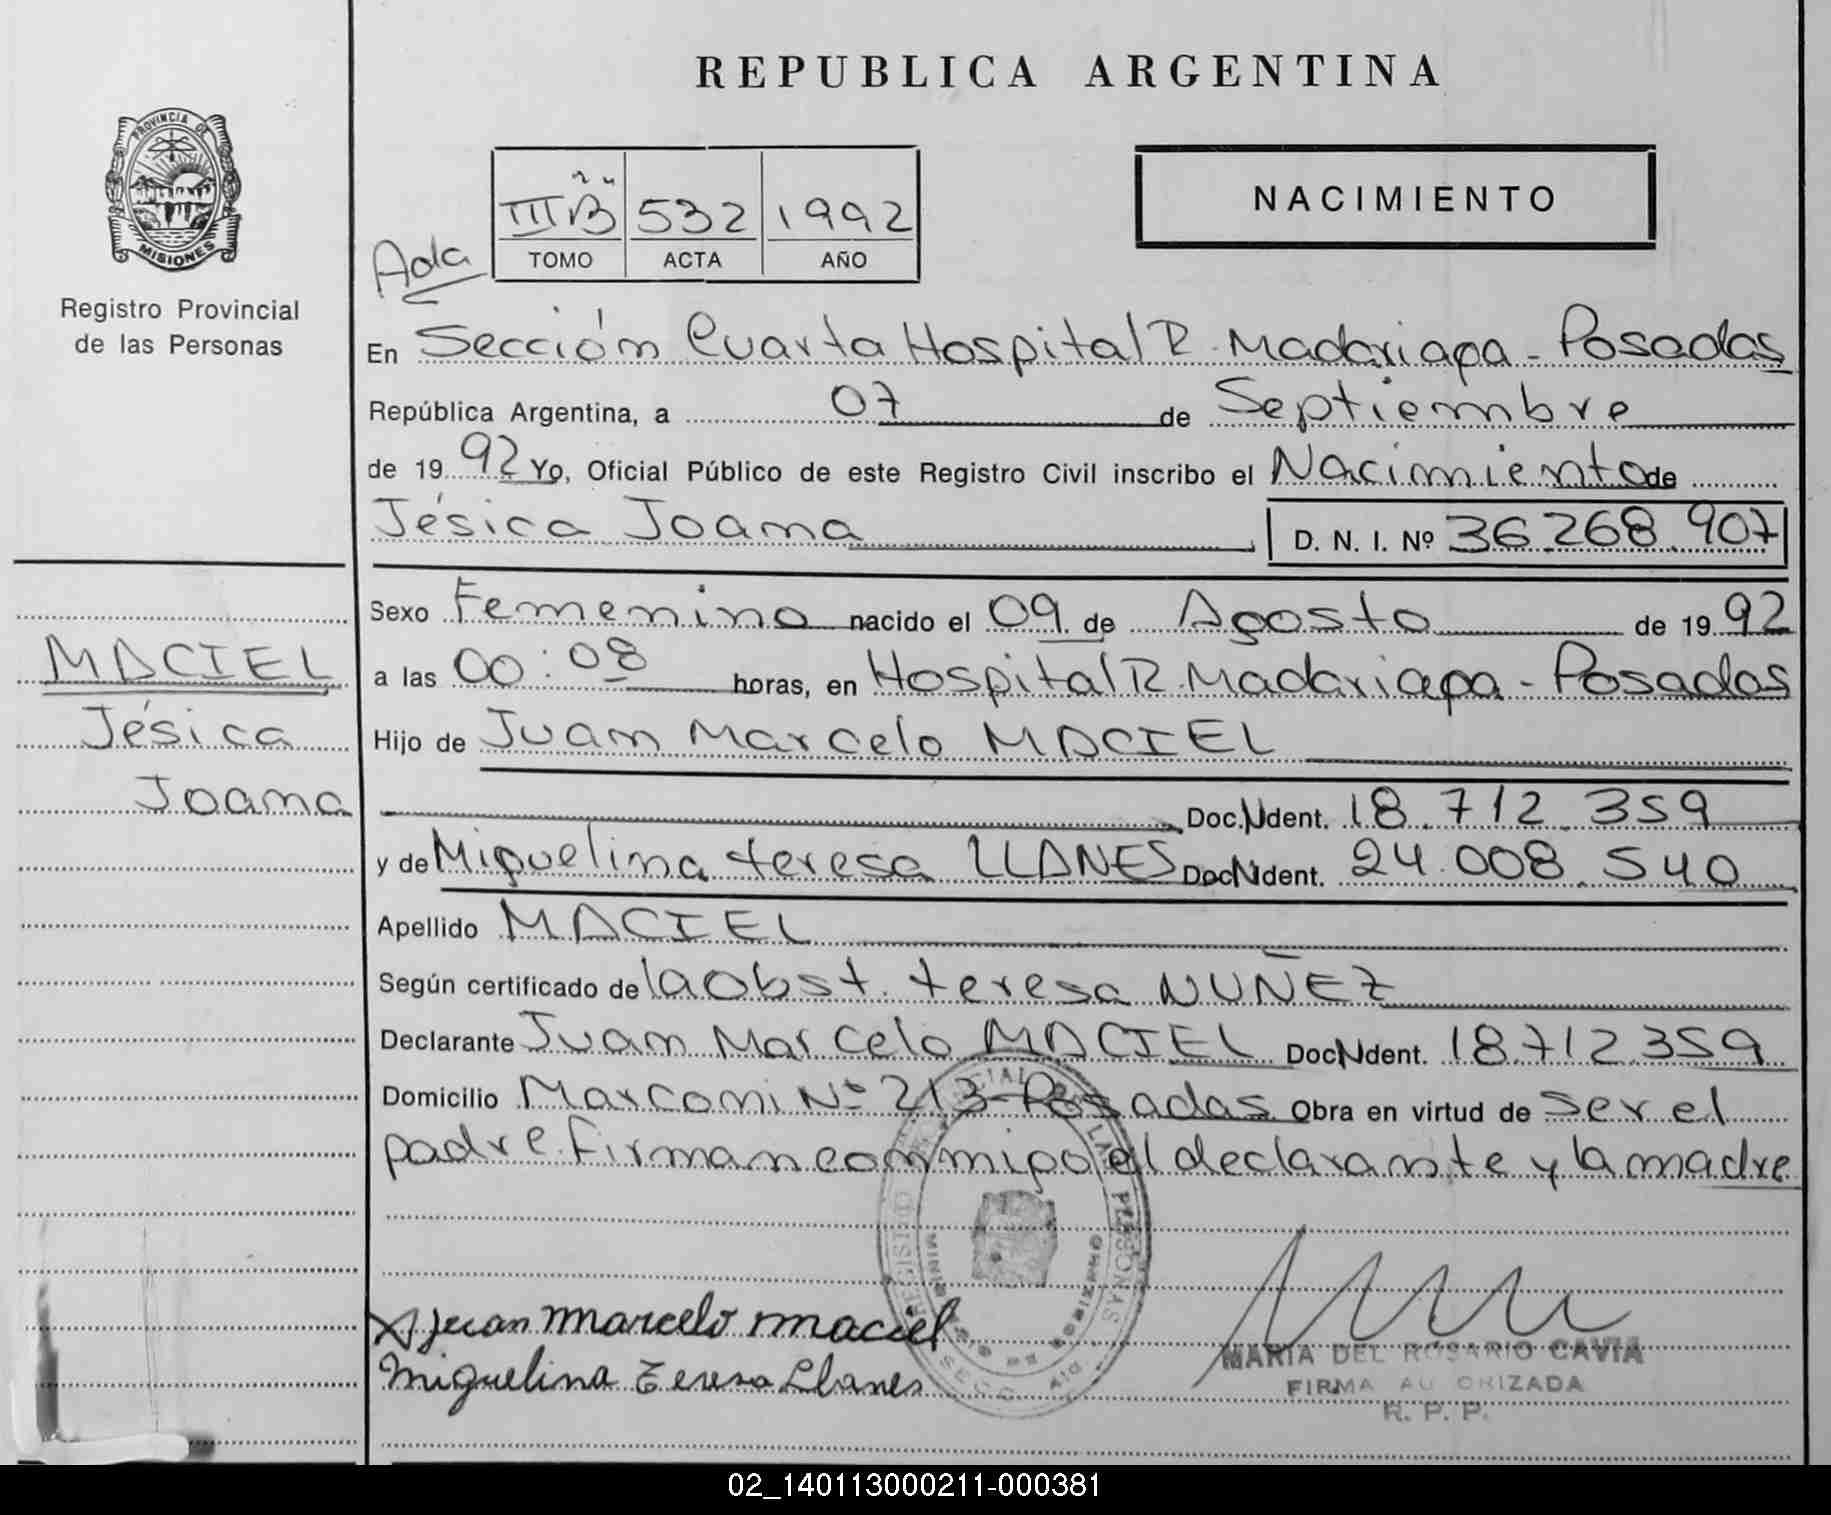 REPUBLICA ARGENTINA
PROVINCIA DE
MISIONES
Registro Provincial
de las Personas
III B 532 1992
TOMO ACTA AÑO
Ada
NACIMIENTO
En Sección Cuarta Hospital R. Madariaga - Posadas
República Argentina, a 07 de Septiembre
de 19 92 Yo, Oficial Público de este Registro Civil inscribo el Nacimiento de
Jésica Joana D. N. I. Nº 36.268.907
Sexo Femenino nacido el 09 de Agosto de 19 92
a las 00:08 horas, en Hospital R. Madariaga - Posadas
Hijo de Juan Marcelo MACIEL
Doc. N Ident. 18.712.359
y de Miguelina teresa LLANES Doc N Ident. 24.008.540
Apellido MACIEL
Según certificado de la Obst. teresa NUÑEZ
Declarante Juan Marcelo MACIEL Doc N Ident. 18.712.359
Domicilio Marconi Nº 213 - Posadas Obra en virtud de ser el
padre. firman conmigo el declarante y la madre
MACIEL
Jésica
Joana
Juan marcelo maciel
Miguelina Teresa Llanes
MARIA DEL ROSARIO CAVIA
FIRMA AUTORIZADA
R. P. P.
02_140113000211-000381